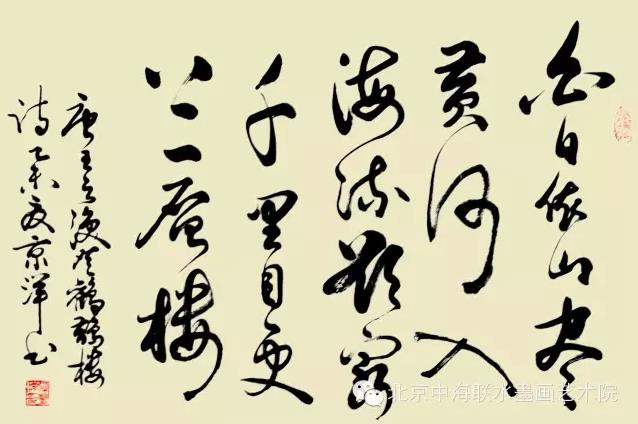 白日依山尽
黄河入
海流欲穷
千里目更
上一层楼
唐王之涣登鹳鹊楼
诗乙未夏京洋书
北京中海联水墨画艺术院